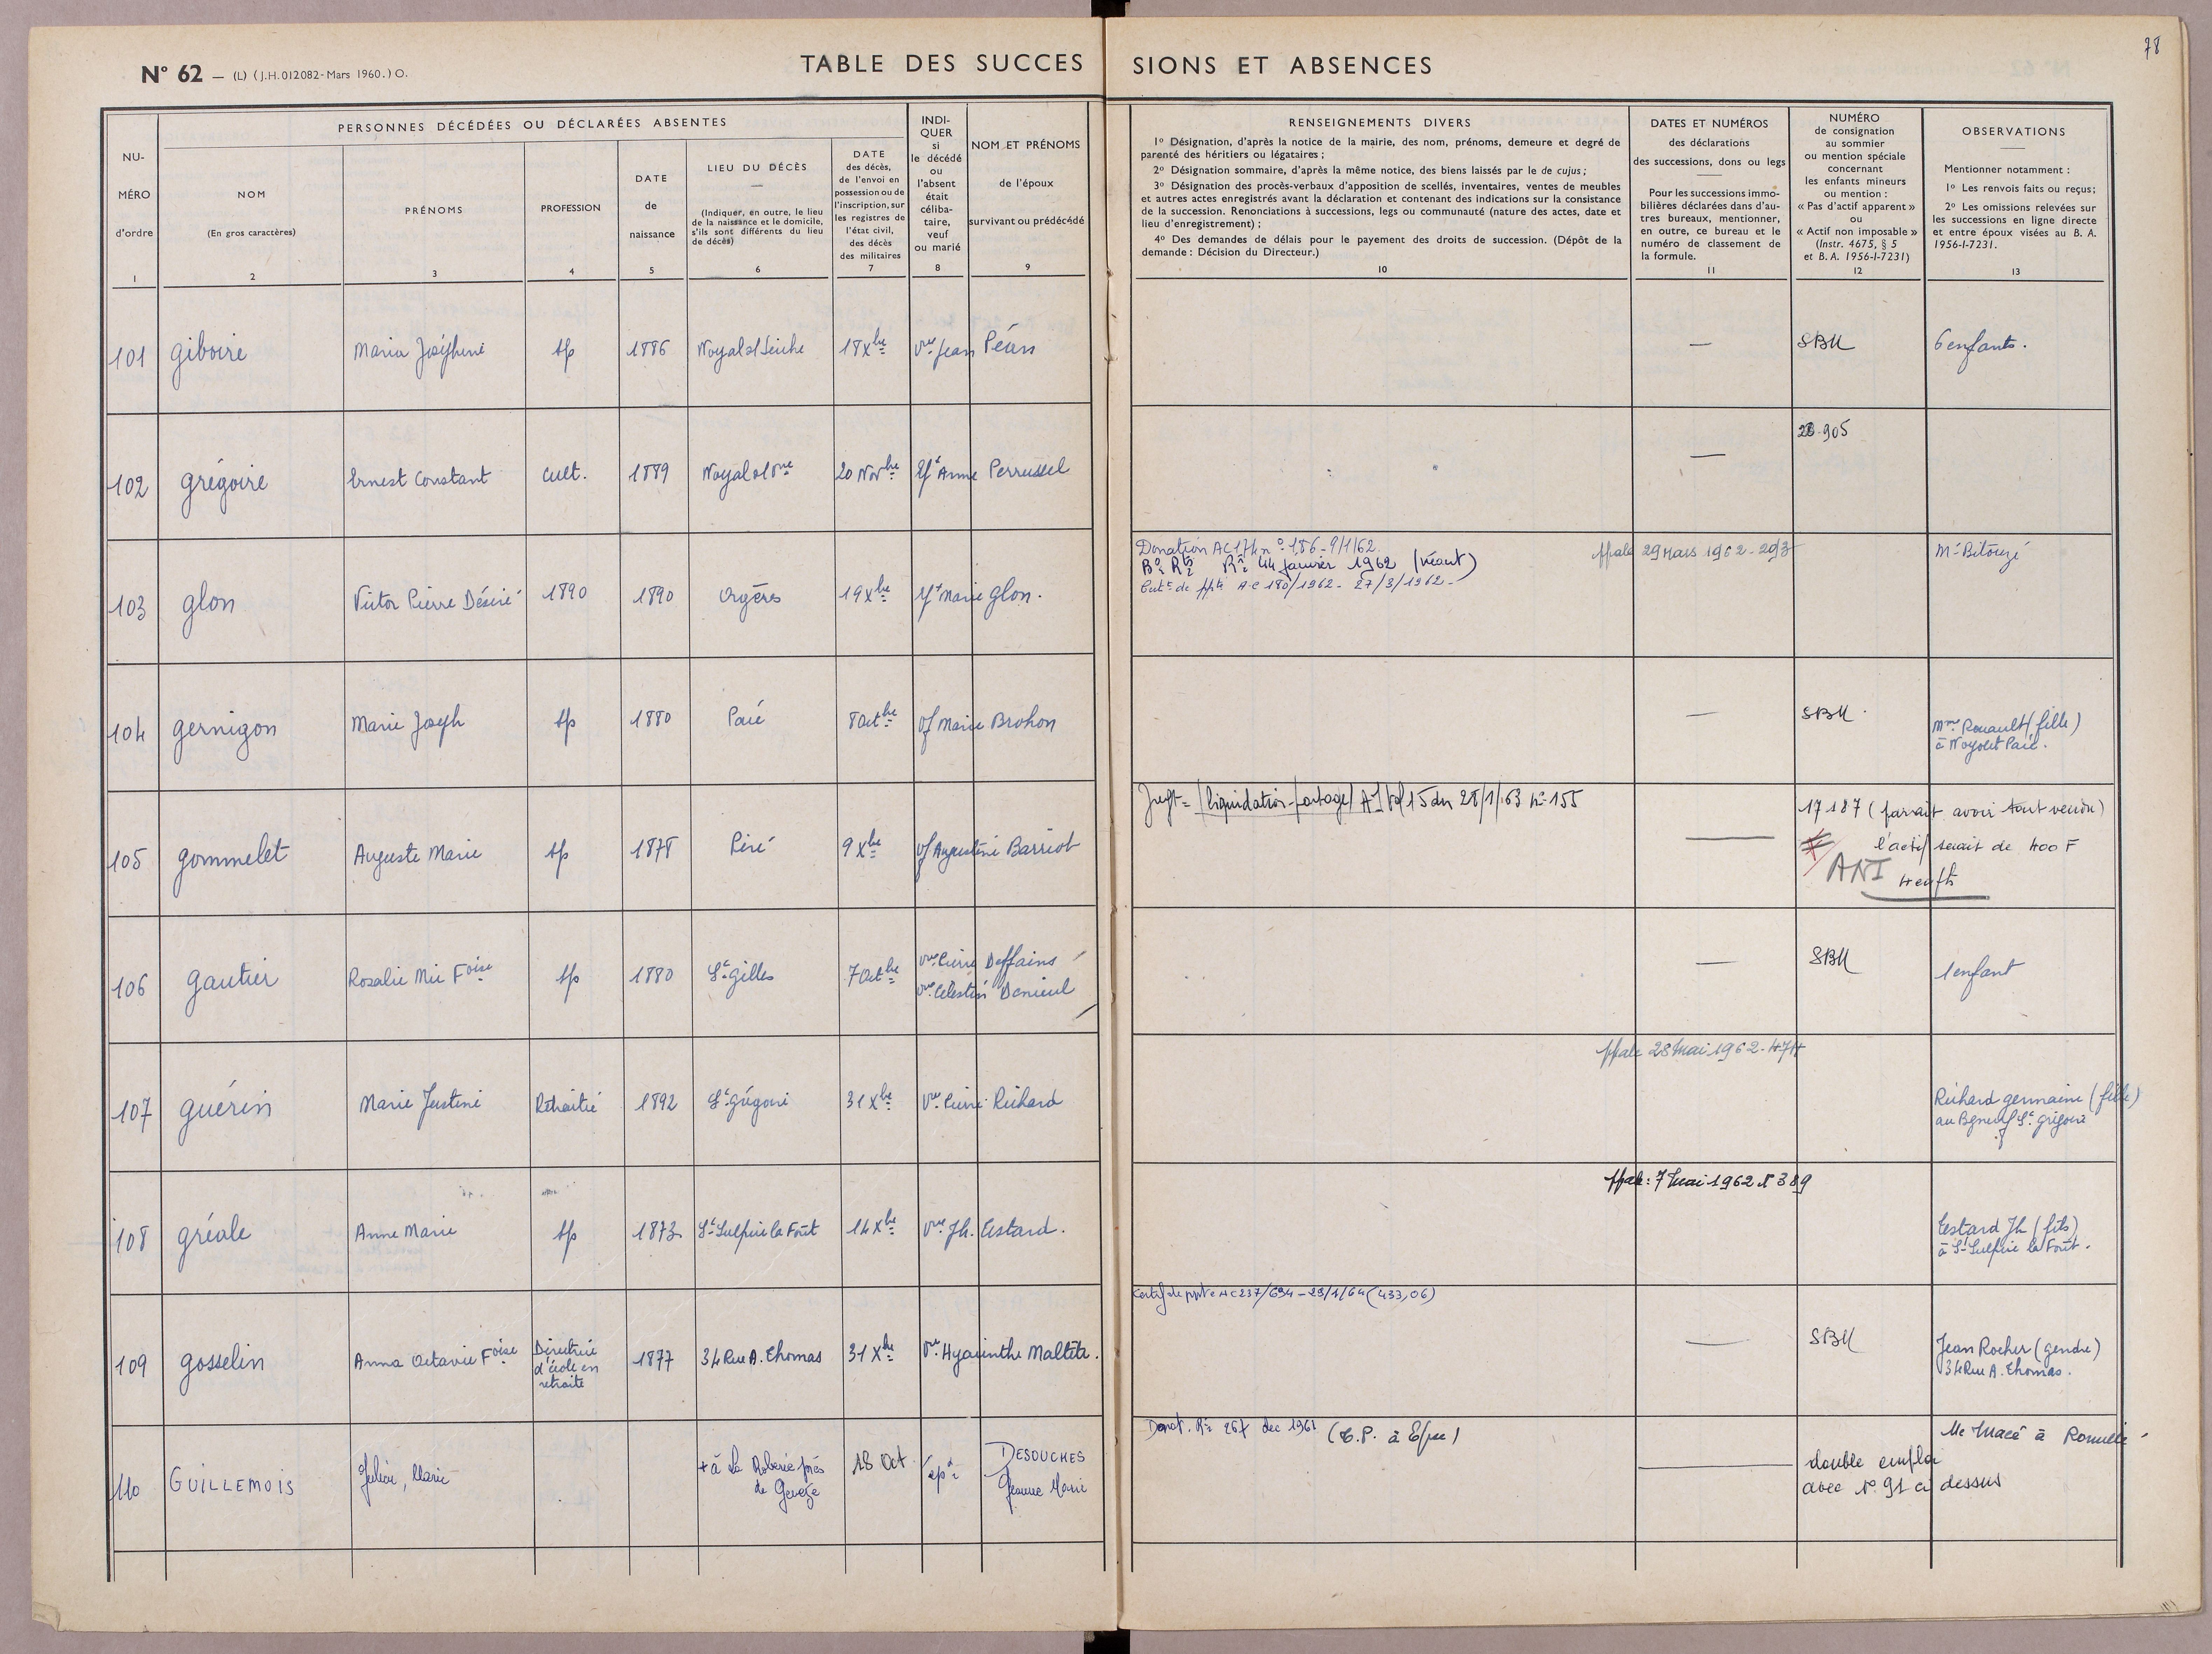 78
N° 62 — (L) (J.H. 012082 - Mars 1960.) O.
TABLE DES SUCCES SIONS ET ABSENCES
NU-
MÉRO
d'ordre
1
PERSONNES DÉCÉDÉES OU DÉCLARÉES ABSENTES
NOM
(En gros caractères)
2
PRÉNOMS
3
PROFESSION
4
DATE
de
naissance
5
LIEU DU DÉCÈS
(Indiquer, en outre, le lieu
de la naissance et le domicile,
s'ils sont différents du lieu
de décès)
6
DATE
des décès,
de l'envoi en
possession ou de
l'inscription, sur
les registres de
l'état civil,
des décès
des militaires
7
INDI-
QUER
si
le décédé
ou
l'absent
était
céliba-
taire,
veuf
ou marié
8
NOM ET PRÉNOMS
de l'époux
survivant ou prédécédé
9
RENSEIGNEMENTS DIVERS
1° Désignation, d'après la notice de la mairie, des nom, prénoms, demeure et degré de
parenté des héritiers ou légataires ;
2° Désignation sommaire, d'après la même notice, des biens laissés par le de cujus ;
3° Désignation des procès-verbaux d'apposition de scellés, inventaires, ventes de meubles
et autres actes enregistrés avant la déclaration et contenant des indications sur la consistance
de la succession. Renonciations à successions, legs ou communauté (nature des actes, date et
lieu d'enregistrement) ;
4° Des demandes de délais pour le payement des droits de succession. (Dépôt de la
demande : Décision du Directeur.)
10
DATES ET NUMÉROS
des déclarations
des successions, dons ou legs
Pour les successions immo-
bilières déclarées dans d'au-
tres bureaux, mentionner,
en outre, ce bureau et le
numéro de classement de
la formule.
11
NUMÉRO
de consignation
au sommier
ou mention spéciale
concernant
les enfants mineurs
ou mention :
« Pas d'actif apparent »
ou
« Actif non imposable »
(Instr. 4675, § 5
et B. A. 1956-I-7231)
12
OBSERVATIONS
Mentionner notamment :
1° Les renvois faits ou reçus ;
2° Les omissions relevées sur
les successions en ligne directe
et entre époux visées au B. A.
1956-I-7231.
13
101 giboire Maria Joséphine sp 1886 Noyal s/ Seiche 18 Xbre Vve Jean Péan — SBM 6 enfants.
102 grégoire Ernest Constant cult. 1889 Noyal s/ Vne 20 Novbre Anne Perrussel — 905
103 glon Victor Pierre Désiré 1890 1890 Orgères 19 Xbre Marie glon.
Donation AC 174 n° 186 - 9/1/62
janvier 1962 (néant)
Certt de ppté AC 180/1962 - 27/3/1962 -
29 Mars 1962 - 203
Me Bitouzé
104 gernigon Marie Joseph sp 1880 Pacé 8 Octbre Vf Marie Brohon — SBM
Mme Rouault (fille)
105 gommelet Auguste Marie sp 1878 Piré 9 Xbre Vf Augustine Barriot
(liquidation-partage) AJ Vol 15 du 28/1/63 n° 155
— 17187 (parait avoir tout vendu)
l'actif serait de 400 F
ANI 4 enfts
106 gautier Rosalie Mie Foise sp 1880 St gilles 7 Octbre
Vve Pierre Deffains
Vve Célestin Denieul
— SBM 1 enfant
107 guérin Marie Justine Retraitée 1892 St grégoire 31 Xbre Vve Pierre Richard
28 Mai 1962 - 474
Richard germaine (fille)
St grégoire
108 gréale Anne Marie sp 1873 St Sulpice la Forêt 14 Xbre Vve Jh. Testard.
7 Mai 1962 N° 389
Testard Jh (fils)
à St Sulpice la Forêt.
109 gosselin Anna Octavie Foise
Directrice
d'école en
retraite
1877 34 Rue A. Thomas 31 Xbre Vve Hyacinthe Maltête.
Certif de ppté AC 237/694 - 29/1/64 (433,06)
— SBM
Jean Rocher (gendre)
34 Rue A. Thomas.
110 GUILLEMOIS Julien, Marie
+ à La Roberie près
de Gevezé
18 Oct
DESOUCHES
Jeanne Marie
Donat. 267 dec 1961
Me Macé à Romillé
double emploi
avec N° 91 ci dessus